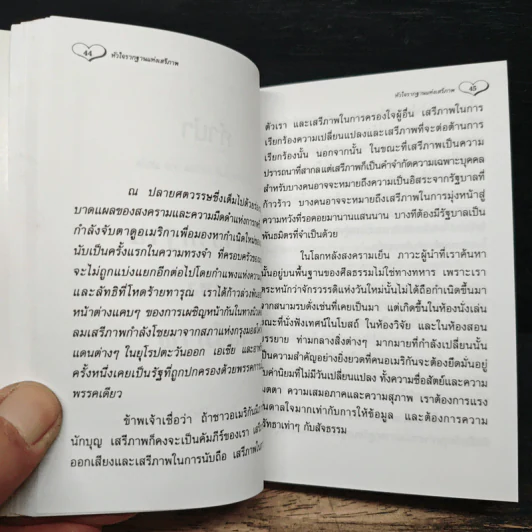 44
หัวใจรากฐานแห่งเสรีภาพ
ณ ปลายศตวรรษซึ่งเต็มไปด้วย
บาดแผลของสงครามและความมืดดำแห่งการ
ซึ่งจับตาดูอเมริกาเพื่อมองหากำเนิดใหม่
นับเป็นครั้งแรกในความทรงจำ ที่ครอบครัว
จะไม่ถูกแบ่งแยกอีกต่อไปโดยกำแพงแห่งความ
และลัทธิที่โหดร้ายทารุณ เราได้ก้าวล่วง
หน้าต่างแคบๆ ของการเผชิญหน้ากันในทาง
ลมเสรีภาพกำลังโชยมาจากสภาแห่งกรุงมอส
แดนต่างๆ ในยุโรปตะวันออก เอเชีย และ
ครั้งหนึ่งเคยเป็นรัฐที่ถูกปกครองด้วยพรรค
พรรคเดียว
ข้าพเจ้าเชื่อว่า ถ้าชาวอเมริกัน
นักบุญ เสรีภาพก็คงจะเป็นคัมภีร์ของเรา
ออกเสียงและเสรีภาพในการนับถือ เสรีภาพใน
หัวใจรากฐานแห่งเสรีภาพ
45
ตัวเรา และเสรีภาพในการครองใจผู้อื่น เสรีภาพในการ
เรียกร้องความเปลี่ยนแปลงและเสรีภาพที่จะต่อต้านการ
เรียกร้องนั้น นอกจากนั้น ในขณะที่เสรีภาพเป็นความ
ปรารถนาที่สากลแต่เสรีภาพก็เป็นคำจำกัดความเฉพาะบุคคล
สำหรับบางคนอาจจะหมายถึงความเป็นอิสระจากรัฐบาลที่
ก้าวร้าว บางคนอาจจะหมายถึงเสรีภาพในการมุ่งหน้าสู่
ความหวังที่รอคอยมานานแสนนาน บางทีต้องมีรัฐบาลเป็น
พันธมิตรที่จำเป็นด้วย
ในโลกหลังสงครามเย็น ภาวะผู้นำที่เราค้นหา
นั้นอยู่บนพื้นฐานของศีลธรรมไม่ใช่ทางทหาร เพราะเรา
ตระหนักว่าจักรวรรดิแห่งวันใหม่นั้นไม่ได้ถือกำเนิดขึ้นมา
จากสนามรบดั่งเช่นที่เคยเป็นมา แต่เกิดขึ้นในห้องนั่งเล่น
ขณะที่นั่งฟังเทศน์ในโบสถ์ ในห้องวิจัย และในห้องสอน
บรรยาย ท่ามกลางสิ่งต่างๆ มากมายที่กำลังเปลี่ยนนั้น
เป็นความสำคัญอย่างยิ่งยวดที่คนอเมริกันจะต้องยึดมั่นอยู่
กับค่านิยมที่ไม่มีวันเปลี่ยนแปลง ทั้งความซื่อสัตย์และความ
เมตตา ความเสมอภาคและความสุภาพ เราต้องการแรง
บันดาลใจมากเท่ากับการให้ข้อมูล และต้องการความ
ศรัทธาเท่าๆ กับสัจธรรม